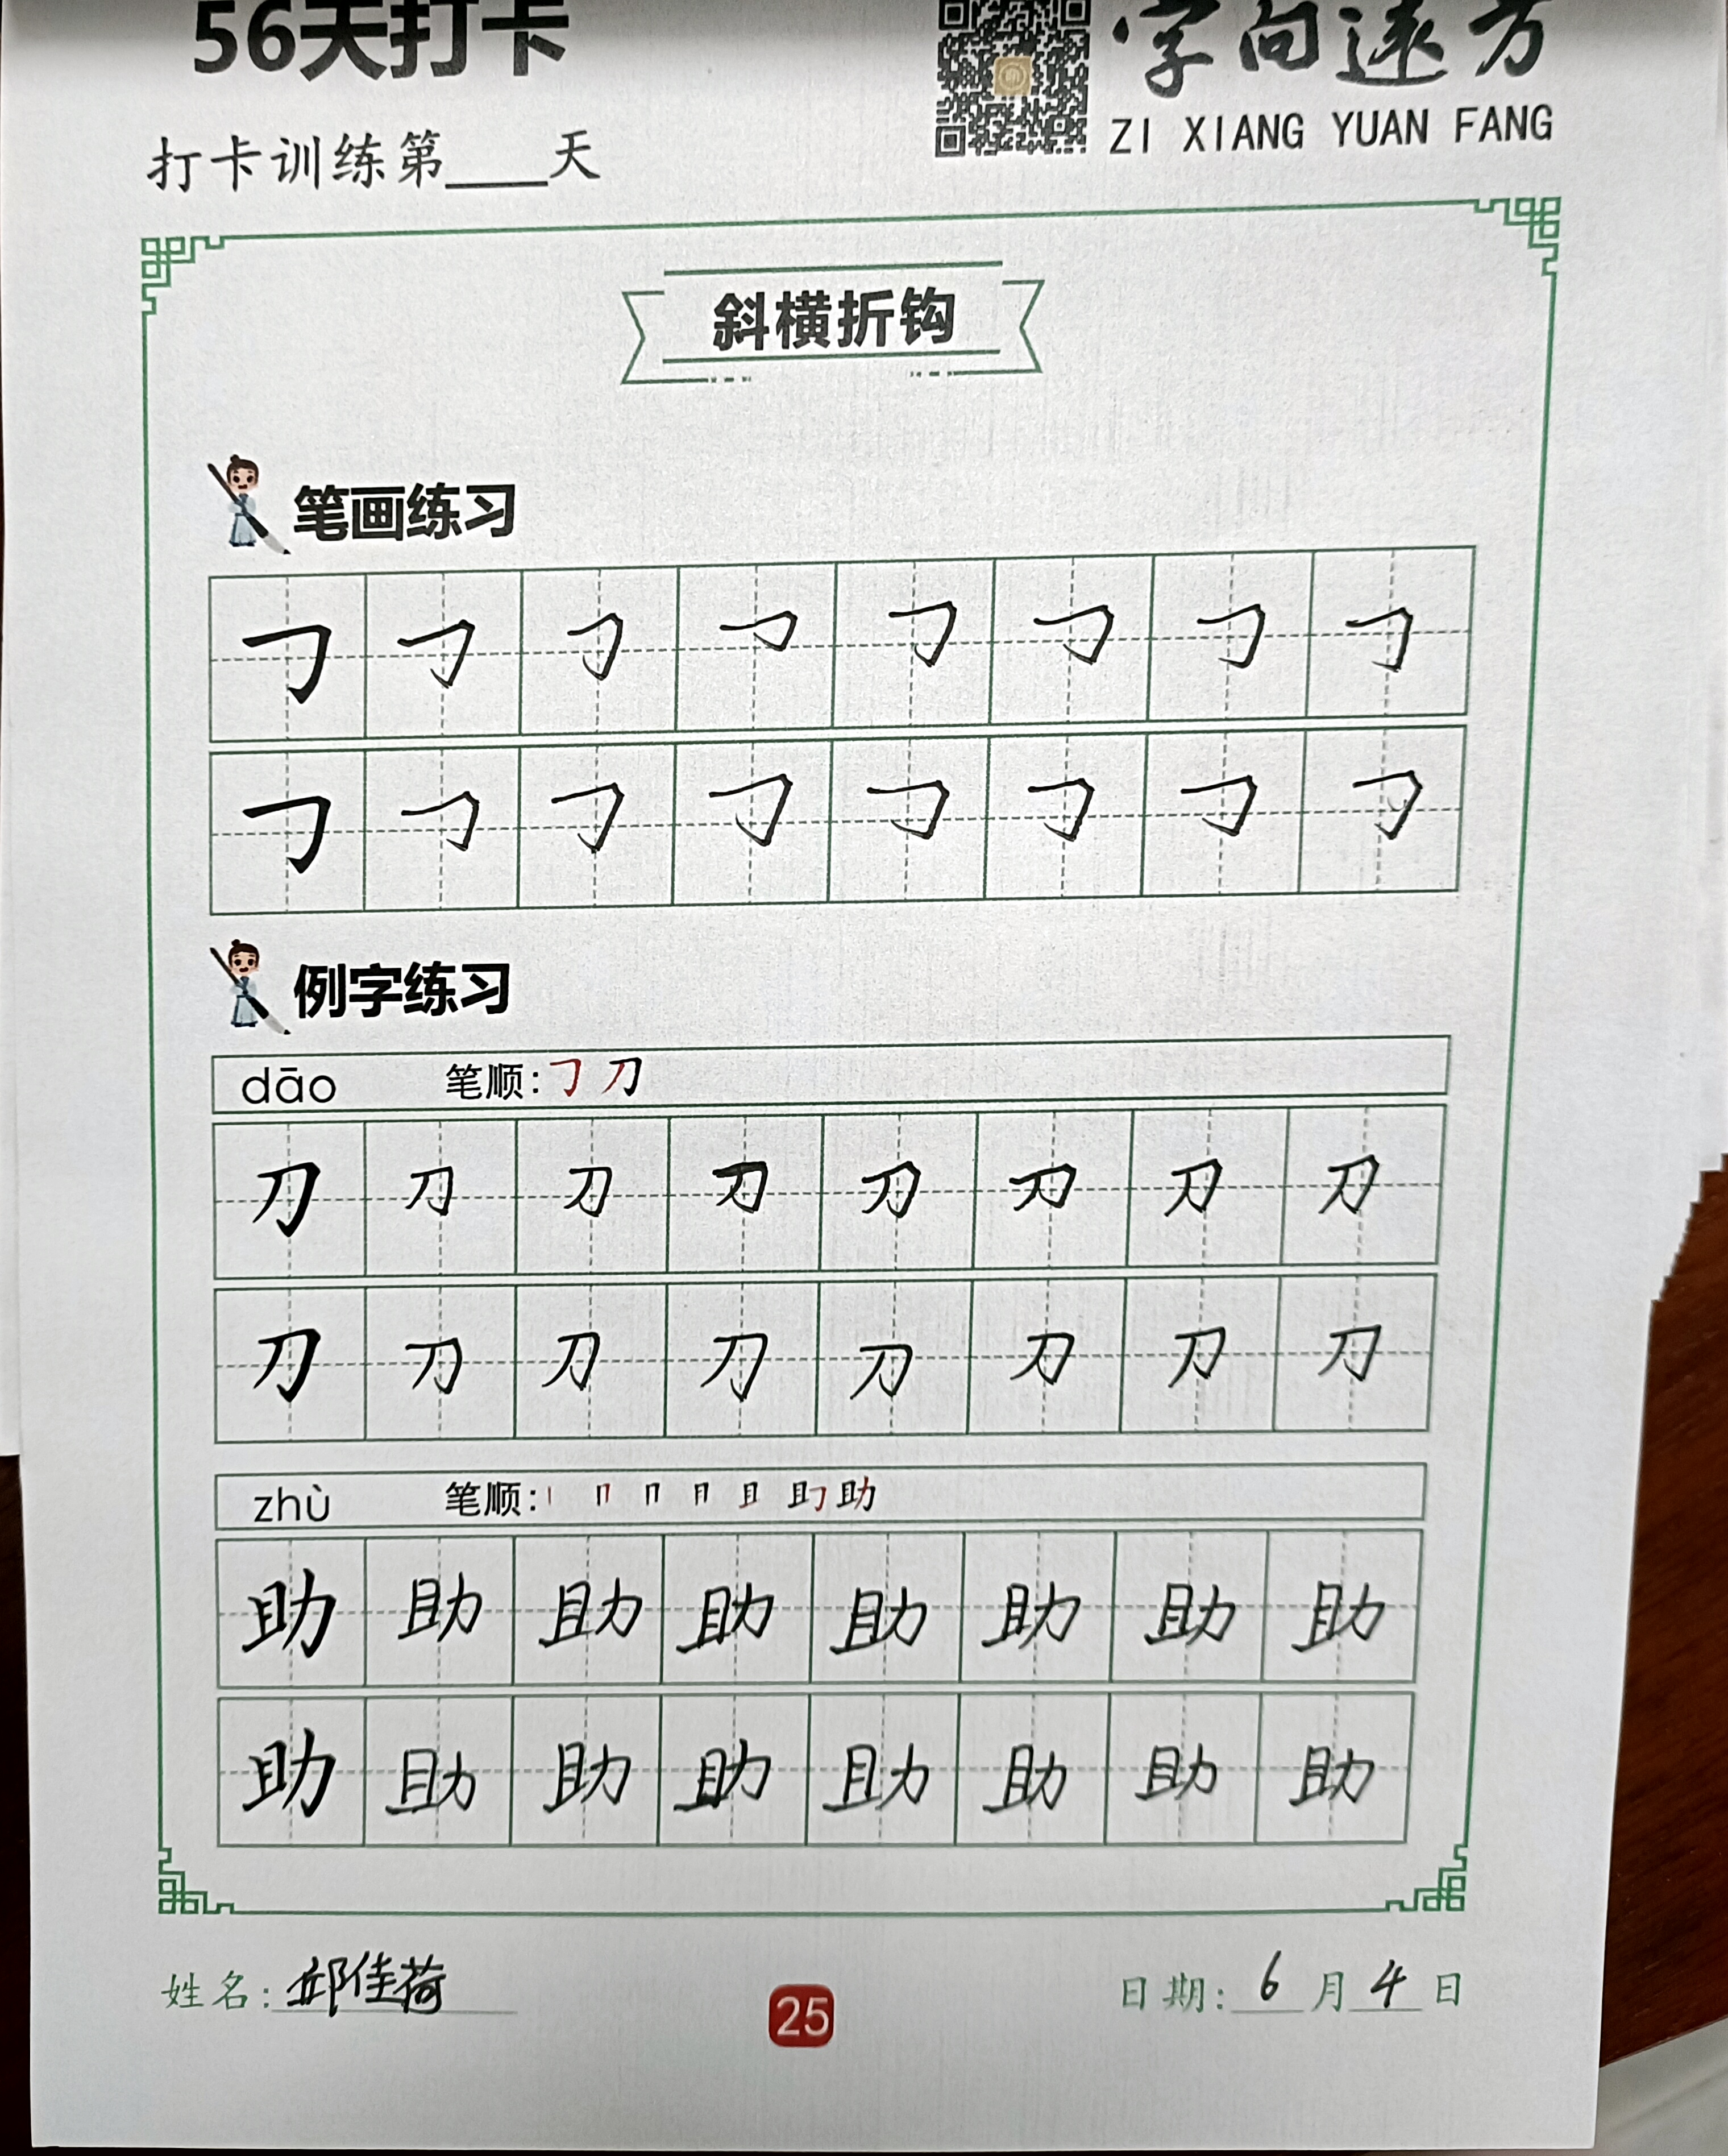 56天打卡
字向远方
ZI XIANG YUAN FANG
打卡训练第____天
斜横折钩
笔画练习
㇆ ㇆ ㇆ ㇆ ㇆ ㇆ ㇆ ㇆
㇆ ㇆ ㇆ ㇆ ㇆ ㇆ ㇆ ㇆
例字练习
dāo 笔顺:㇆ 刀
刀 刀 刀 刀 刀 刀 刀 刀
刀 刀 刀 刀 刀 刀 刀 刀
zhù 笔顺:丨 冂 冂 月 且 助
助 助 助 助 助 助 助 助
助 助 助 助 助 助 助 助
姓名:邱佳荷
25
日期:6月4日